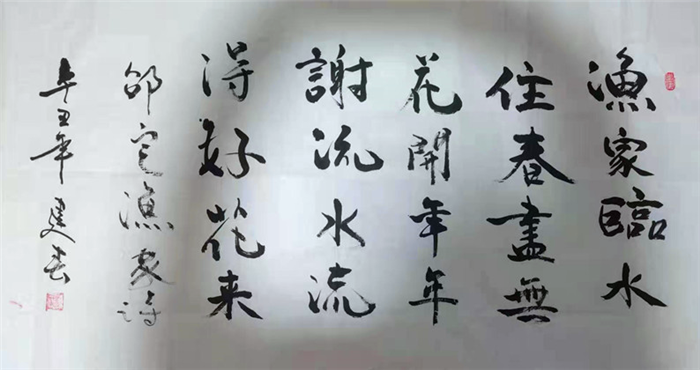 漁家臨水
住春盡無
花開年年
謝流水流
得好花来
邵定漁家詩
辛丑年建